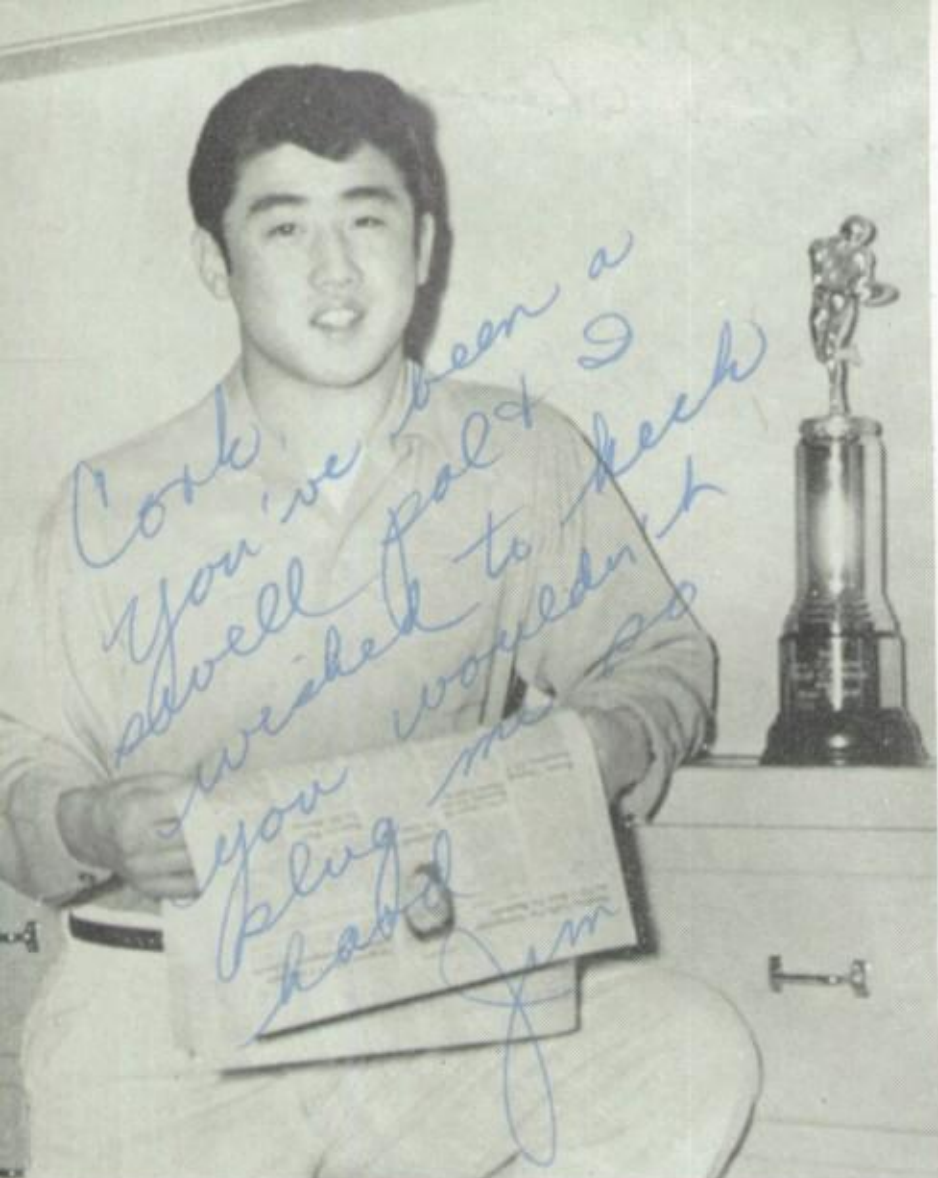 Cork
You've been a
swell pal & I
wished to heck
you wouldn't
plug me so
hard
Jim